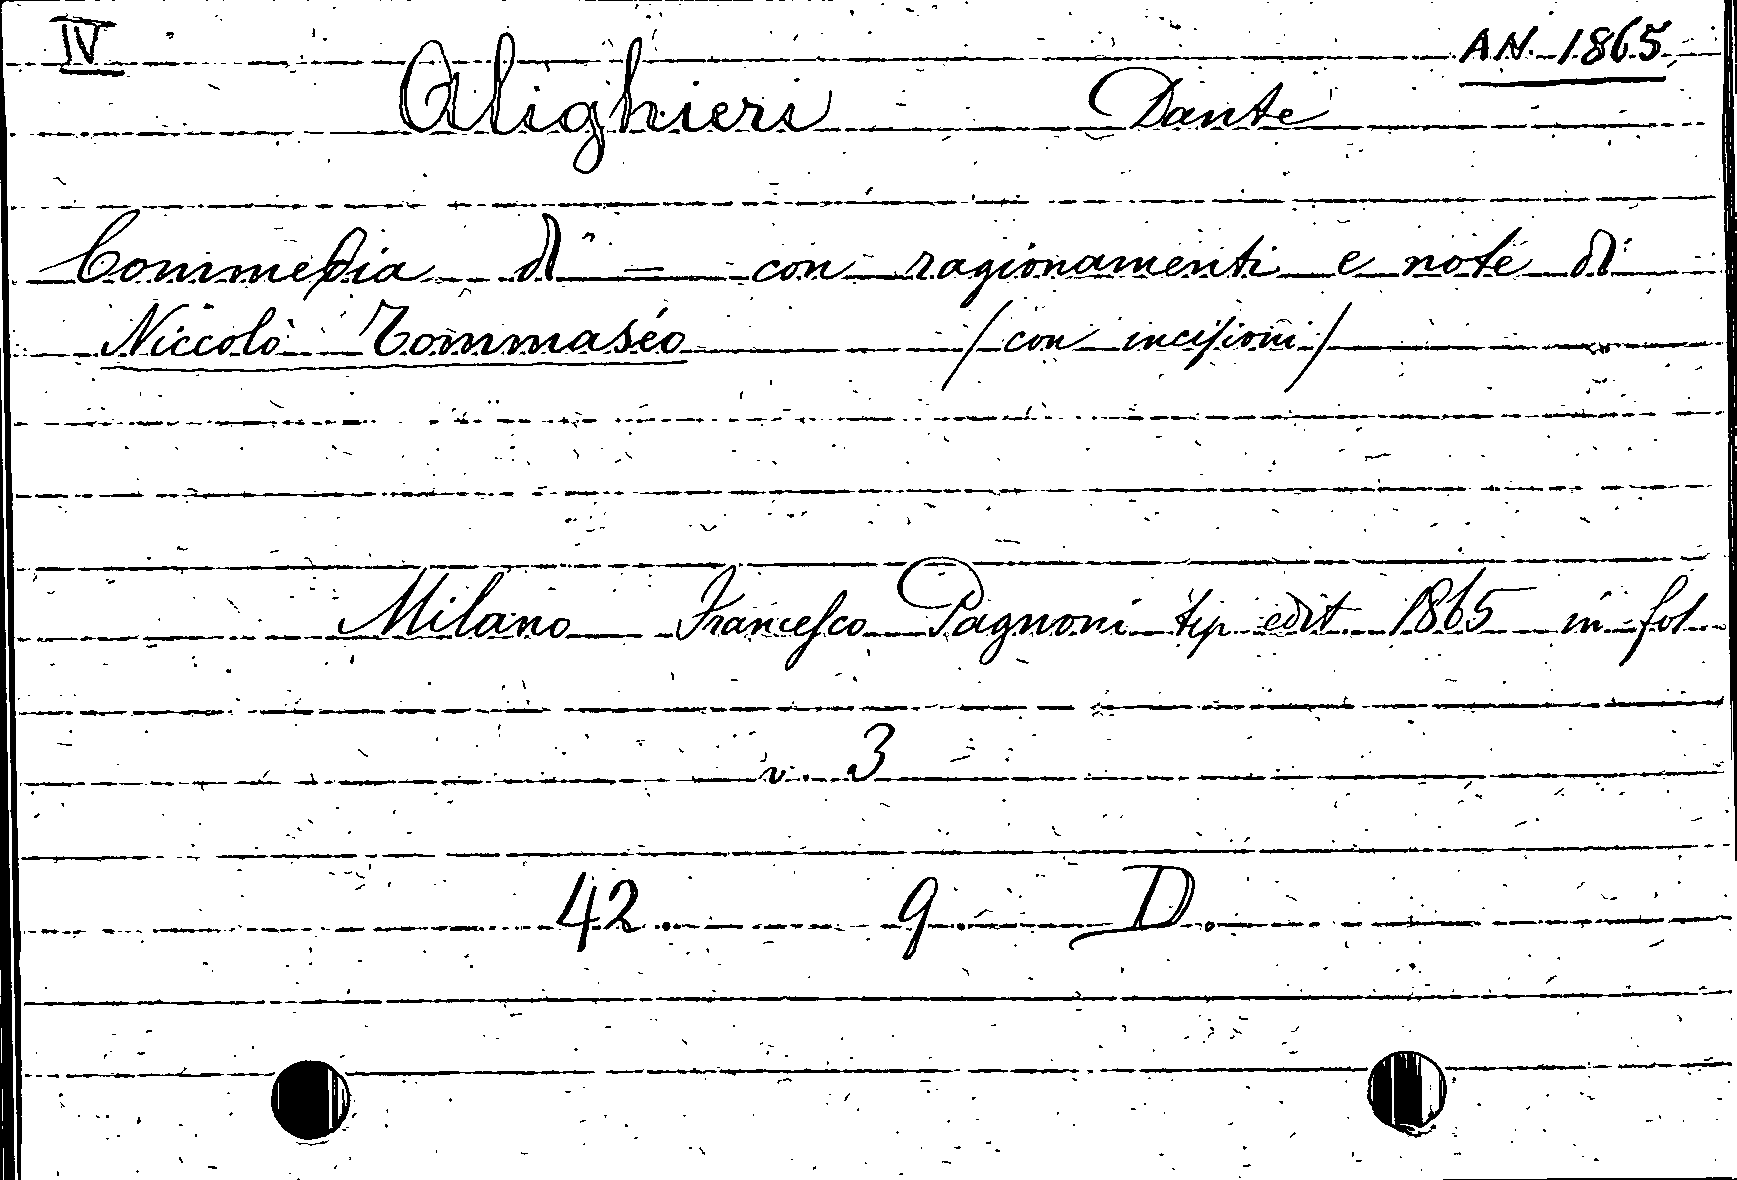 IV AN. 1865
Alighieri Dante
Commedia di — con ragionamenti e note di
Niccolò Tommaséo (con incisioni)
Milano Francesco Pagnoni tip edit 1865 in fol.
v. 3
42. 9. D.